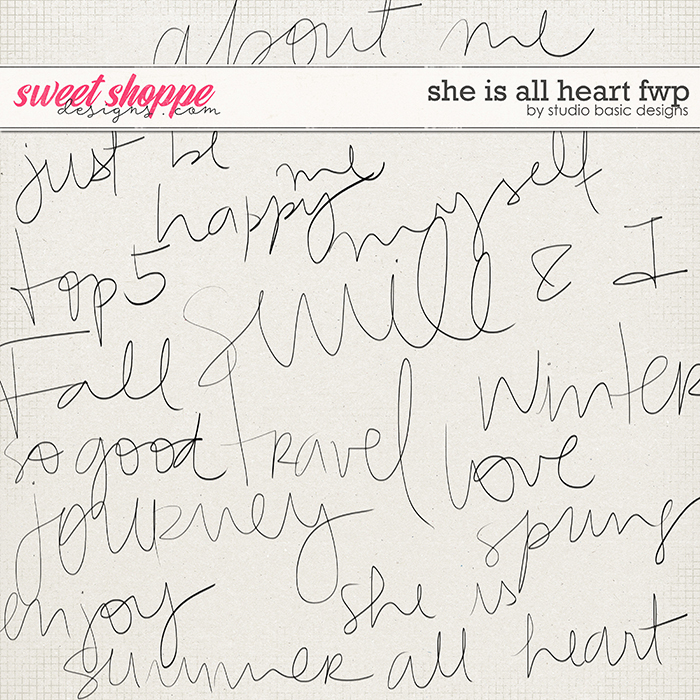 about me
sweet shoppe
designs.com
she is all heart fwp
by studio basic designs
just be
happy
me
myself
& I
top 5
smile
Fall
Winter
so good
travel
love
journey
spring
enjoy
she is
summer
all heart